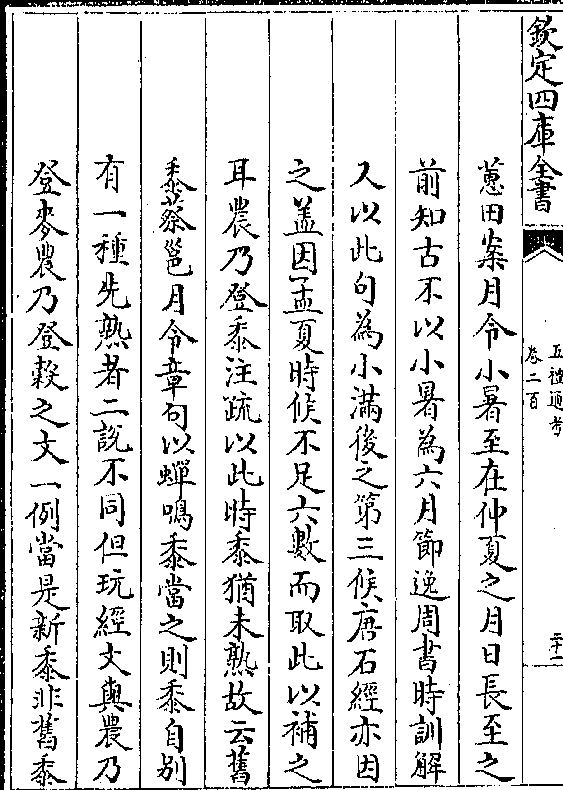 欽定四庫全書
五禮通考
卷二百
二十一
蕙田案月令小暑至在仲夏之月日長至之
前知古不以小暑為六月節逸周書時訓解
又以此句為小滿後之第三候唐石經亦因
之蓋因孟夏時候不足六數而取此以補之
耳農乃登黍注疏以此時黍猶未熟故云舊
黍蔡邕月令章句以蟬鳴黍當之則黍自别
有一種先熟者二說不同但玩經文與農乃
登麥農乃登糓之文一例當是新黍非舊黍